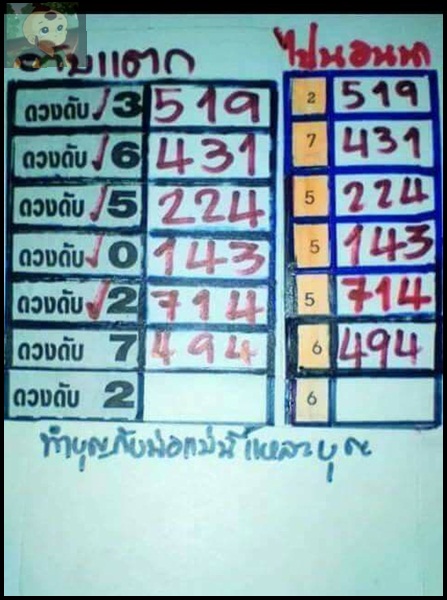 ดับแตก
ดวงดับ √ 3 519
ดวงดับ √ 6 431
ดวงดับ √ 5 224
ดวงดับ √ 0 143
ดวงดับ √ 2 714
ดวงดับ 7 494
ดวงดับ 2
ไปนอนนา
2 519
7 431
5 224
5 143
5 714
6 494
6
ทำบุญกับพ่อแม่นี่แหละบุญ